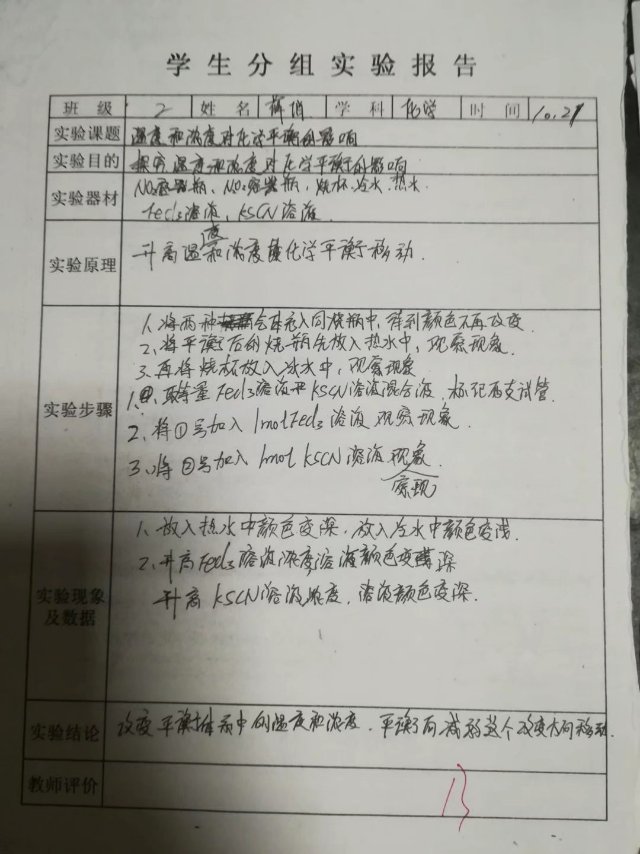 学生分组实验报告
班级 2 姓名 学科 化学 时间 10.21
实验课题 温度和浓度对化学平衡的影响
实验目的 探究温度和浓度对化学平衡的影响
实验器材 NO₂ 瓶、NO₂ 瓶、烧杯、冷水、热水.
Fecl₃溶液, KSCN溶液
度
实验原理 升高温和浓度 化学平衡移动.
1、将两种 气体充入同烧瓶中, 得到颜色不再改变.
2、将平衡后的烧瓶先放入热水中, 观察现象.
3、再将烧杯放入冷水中, 观察现象
1. 等量Fecl₃溶液和KSCN溶液混合液, 标记两支试管.
实验步骤
2、将①号加入1molFecl₃溶液 观察现象.
3、将②号加入1mol KSCN溶液 现象.
观察
1、放入热水中颜色变深, 放入冷水中颜色变浅.
2、升高Fecl₃溶液浓度溶液颜色变深
实验现象及数据 升高KSCN溶液浓度, 溶液颜色变深.
实验结论 改变平衡体系中的温度和浓度, 平衡向减弱这个改变方向移动.
教师评价